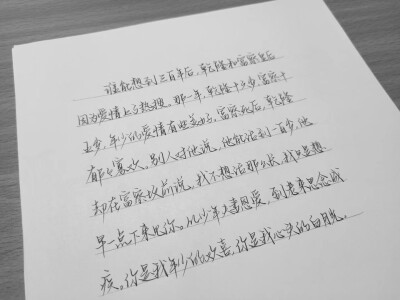 谁能想到三百年后,乾隆和富察皇后
因为爱情上了热搜。那一年,乾隆十六岁,富察十
五岁,年少的爱情有些美好,富察死后,乾隆
郁郁寡欢,别人对他说,他能活到一百岁,他
却在富察坟前说,我不想活那么长,我只是想
早一点下来见你。从少年夫妻恩爱,到老来思念成
疾。你是我年少的欢喜,你是我心头的白月光。